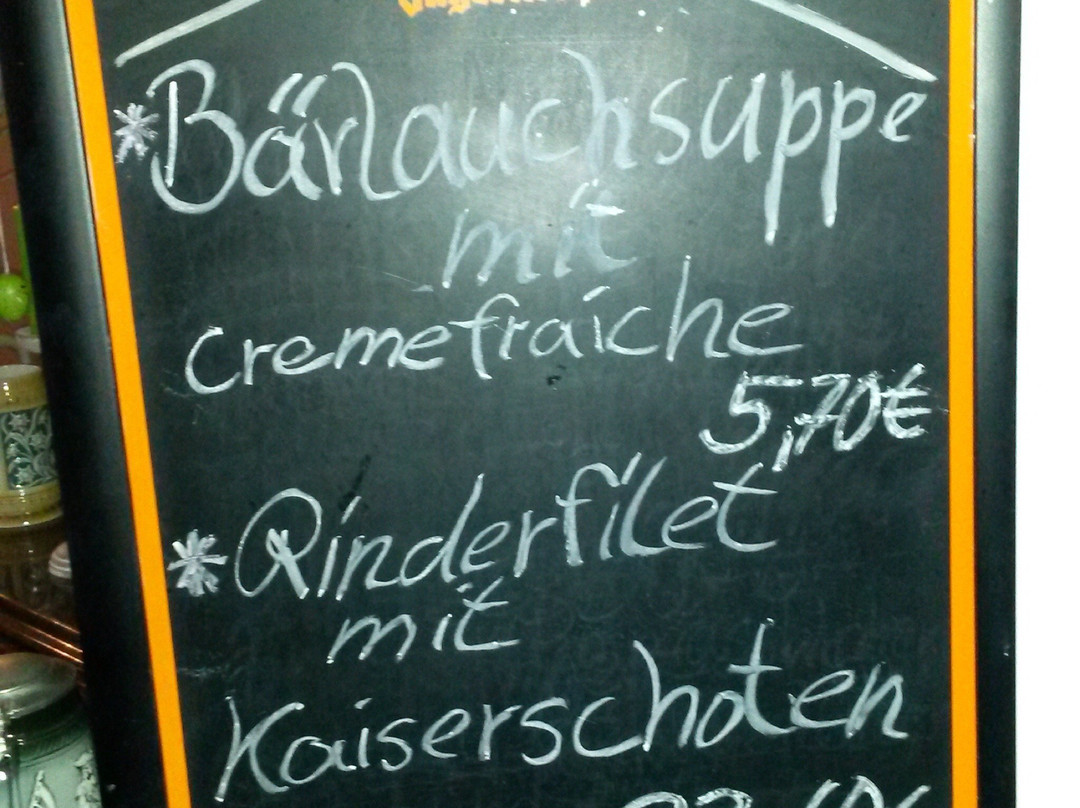 *Bärlauchsuppe
mit
Cremefraiche
5,70€
*Rinderfilet
mit
Kaiserschoten